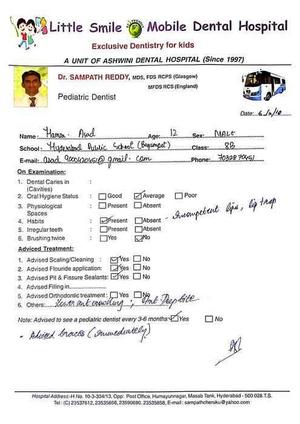 Little Smile Mobile Dental Hospital
Exclusive Dentistry for kids
A UNIT OF ASHWINI DENTAL HOSPITAL (Since 1997)
Dr. SAMPATH REDDY, MDS, FDS RCPS (Glasgow)
MFDS RCS (England)
Pediatric Dentist
Date:
Name: Age: 12 Sex: MALE
School: Hyderabad Public School (Begumpet) Class: 8B
E-mail: @gmail.com Phone:
On Examination:
1. Dental Caries in : (Cavities)
2. Oral Hygiene Status : Good Average Poor
3. Physiological Spaces : Present Absent
4. Habits : Present Absent - Incompetent lips, lip trap
5. Irregular teeth : Present Absent
6. Brushing twice : Yes No
Adviced Treatment:
1. Advised Scaling/Cleaning : Yes No
2. Advised Flouride application: Yes No
3. Advised Pit & Fissure Sealants: Yes No
4. Advised Filling in
5. Advised Orthodontic treatment : Yes No
6. Others: crowding, Deep bite
Note: Advised to see a pediatric dentist every 3-6 months: Yes No
- Advised braces (immediately)
Hospital Address-H No. 10-3-304/13, Opp: Post Office, Humayunnagar, Masab Tank, Hyderabad - 500 028 T.S.
Tel: (C) 23537612, 23535656, 23590690, 23535858, E-mail: sampathcheruku@yahoo.com